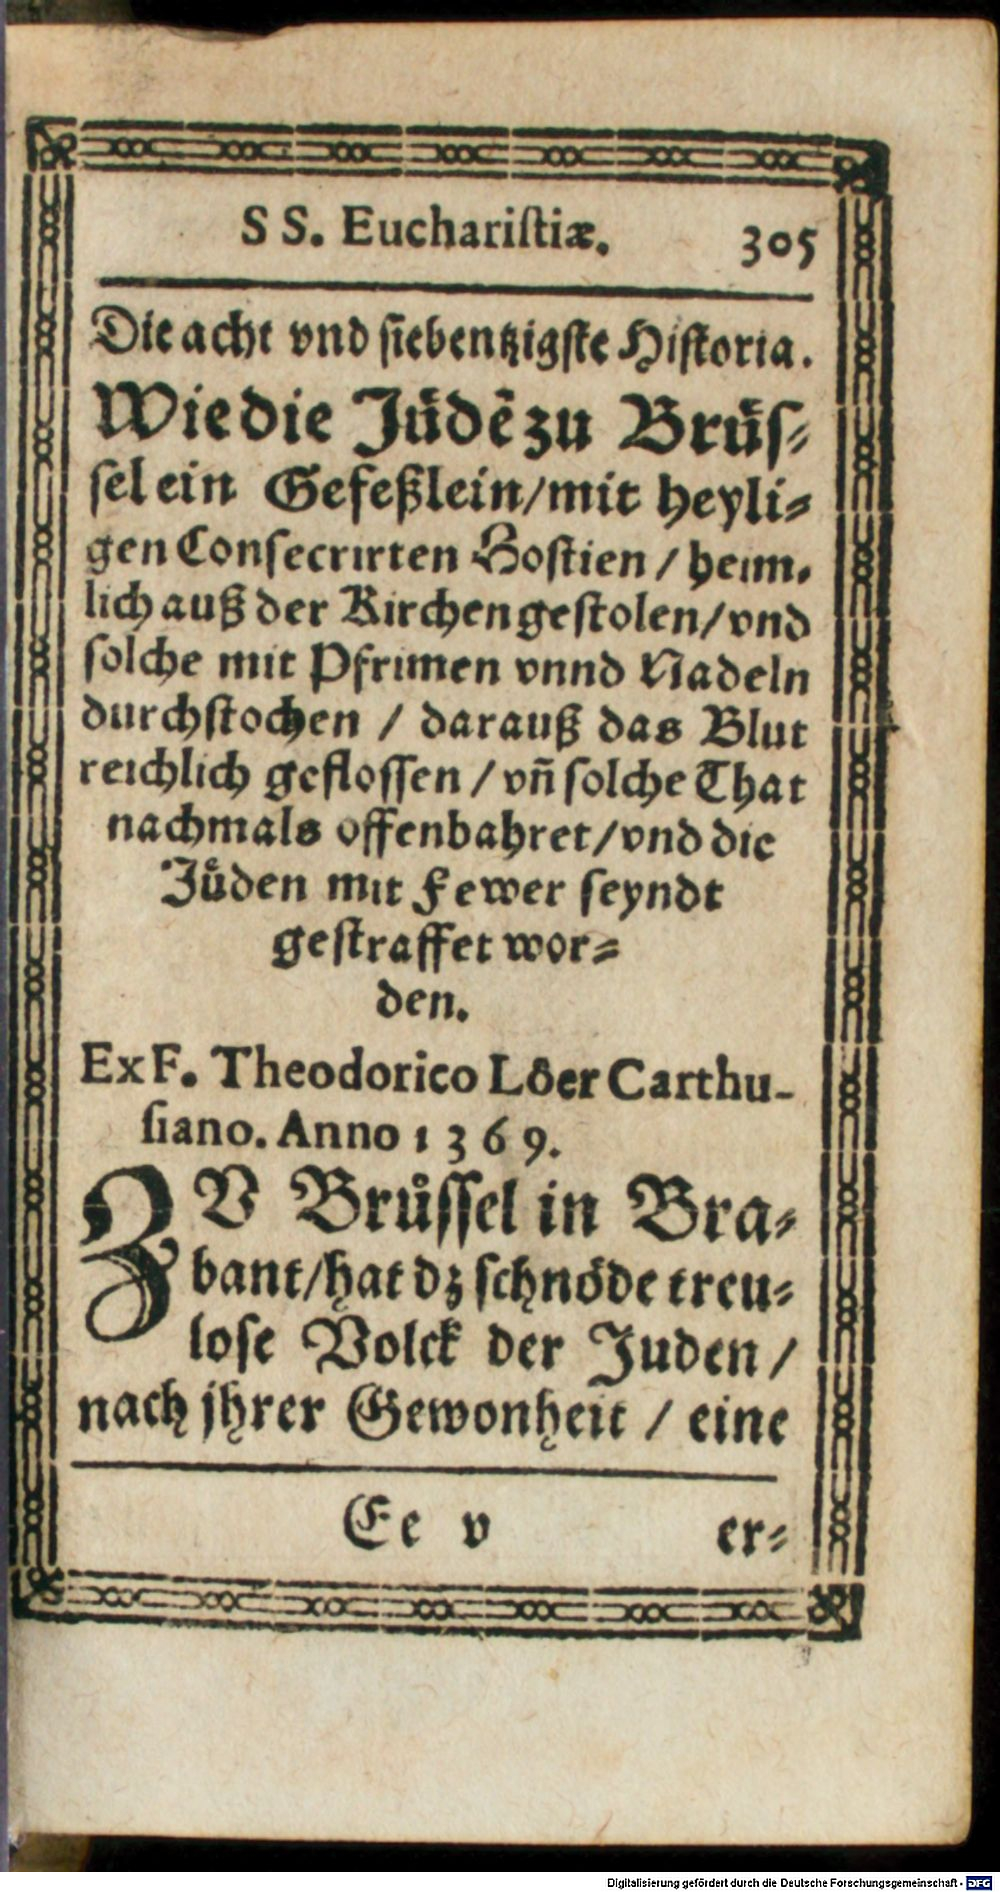 SS. Euchariſtiæ. 305
Die acht vnd ſiebentzigſte Hiſtoria.
Wie die Juͤdẽ zu Bruͤſ⸗
ſel ein Gefeßlein/mit heyli⸗
gen Conſecrirten Hoſtien / heim⸗
lich auß der Kirchen geſtolen/vnd
ſolche mit Pfrimen vnnd Nadeln
durchſtochen / darauß das Blut
reichlich gefloſſen / vñ ſolche That
nachmals offenbahret/vnd die
Juͤden mit Fewer ſeyndt
geſtraffet wor⸗
den.
Ex F. Theodorico Lôer Carthu-
ſiano. Anno 1369.
ZV Bruͤſſel in Bra⸗
bant/hat dz ſchnoͤde treu⸗
loſe Volck der Juden /
nach jhrer Gewonheit / eine
Ee v er⸗
Digitalisierung gefördert durch die Deutsche Forschungsgemeinschaft - DFG